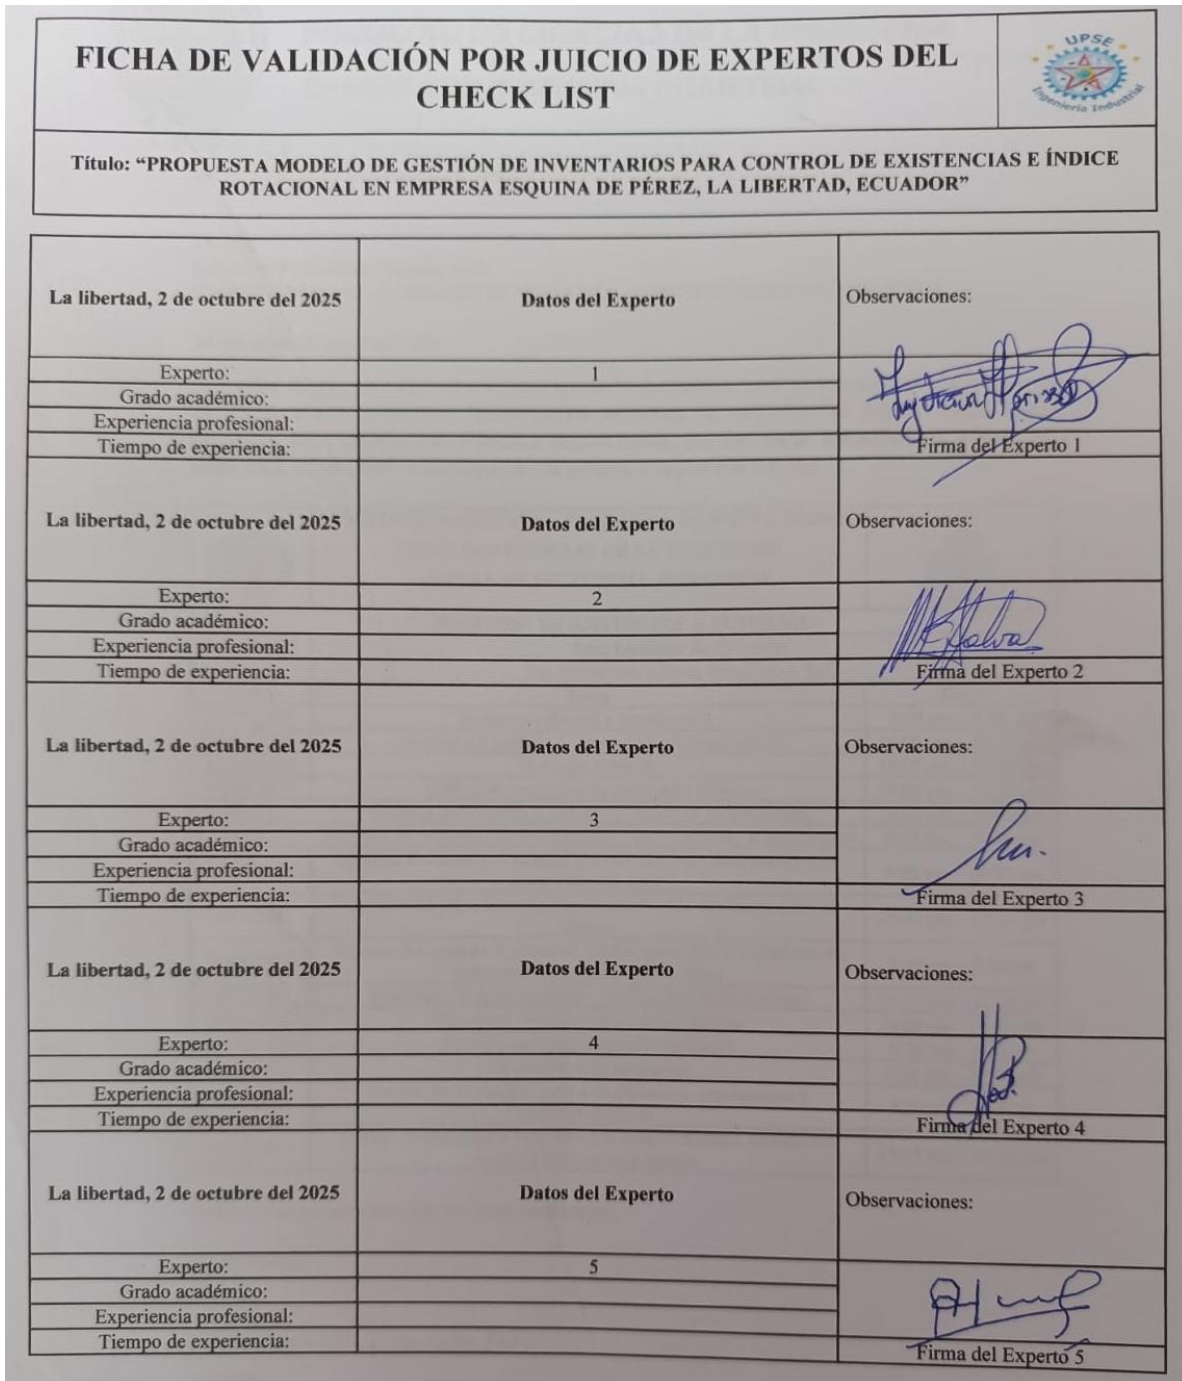 FICHA DE VALIDACIÓN POR JUICIO DE EXPERTOS DEL
CHECK LIST
UPSE
Ingeniería Industrial
Título: “PROPUESTA MODELO DE GESTIÓN DE INVENTARIOS PARA CONTROL DE EXISTENCIAS E ÍNDICE
ROTACIONAL EN EMPRESA ESQUINA DE PÉREZ, LA LIBERTAD, ECUADOR”
La libertad, 2 de octubre del 2025 Datos del Experto Observaciones:
Experto: 1
Grado académico:
Experiencia profesional:
Tiempo de experiencia: Firma del Experto 1
La libertad, 2 de octubre del 2025 Datos del Experto Observaciones:
Experto: 2
Grado académico:
Experiencia profesional:
Tiempo de experiencia: Firma del Experto 2
La libertad, 2 de octubre del 2025 Datos del Experto Observaciones:
Experto: 3
Grado académico:
Experiencia profesional:
Tiempo de experiencia: Firma del Experto 3
La libertad, 2 de octubre del 2025 Datos del Experto Observaciones:
Experto: 4
Grado académico:
Experiencia profesional:
Tiempo de experiencia: Firma del Experto 4
La libertad, 2 de octubre del 2025 Datos del Experto Observaciones:
Experto: 5
Grado académico:
Experiencia profesional:
Tiempo de experiencia: Firma del Experto 5